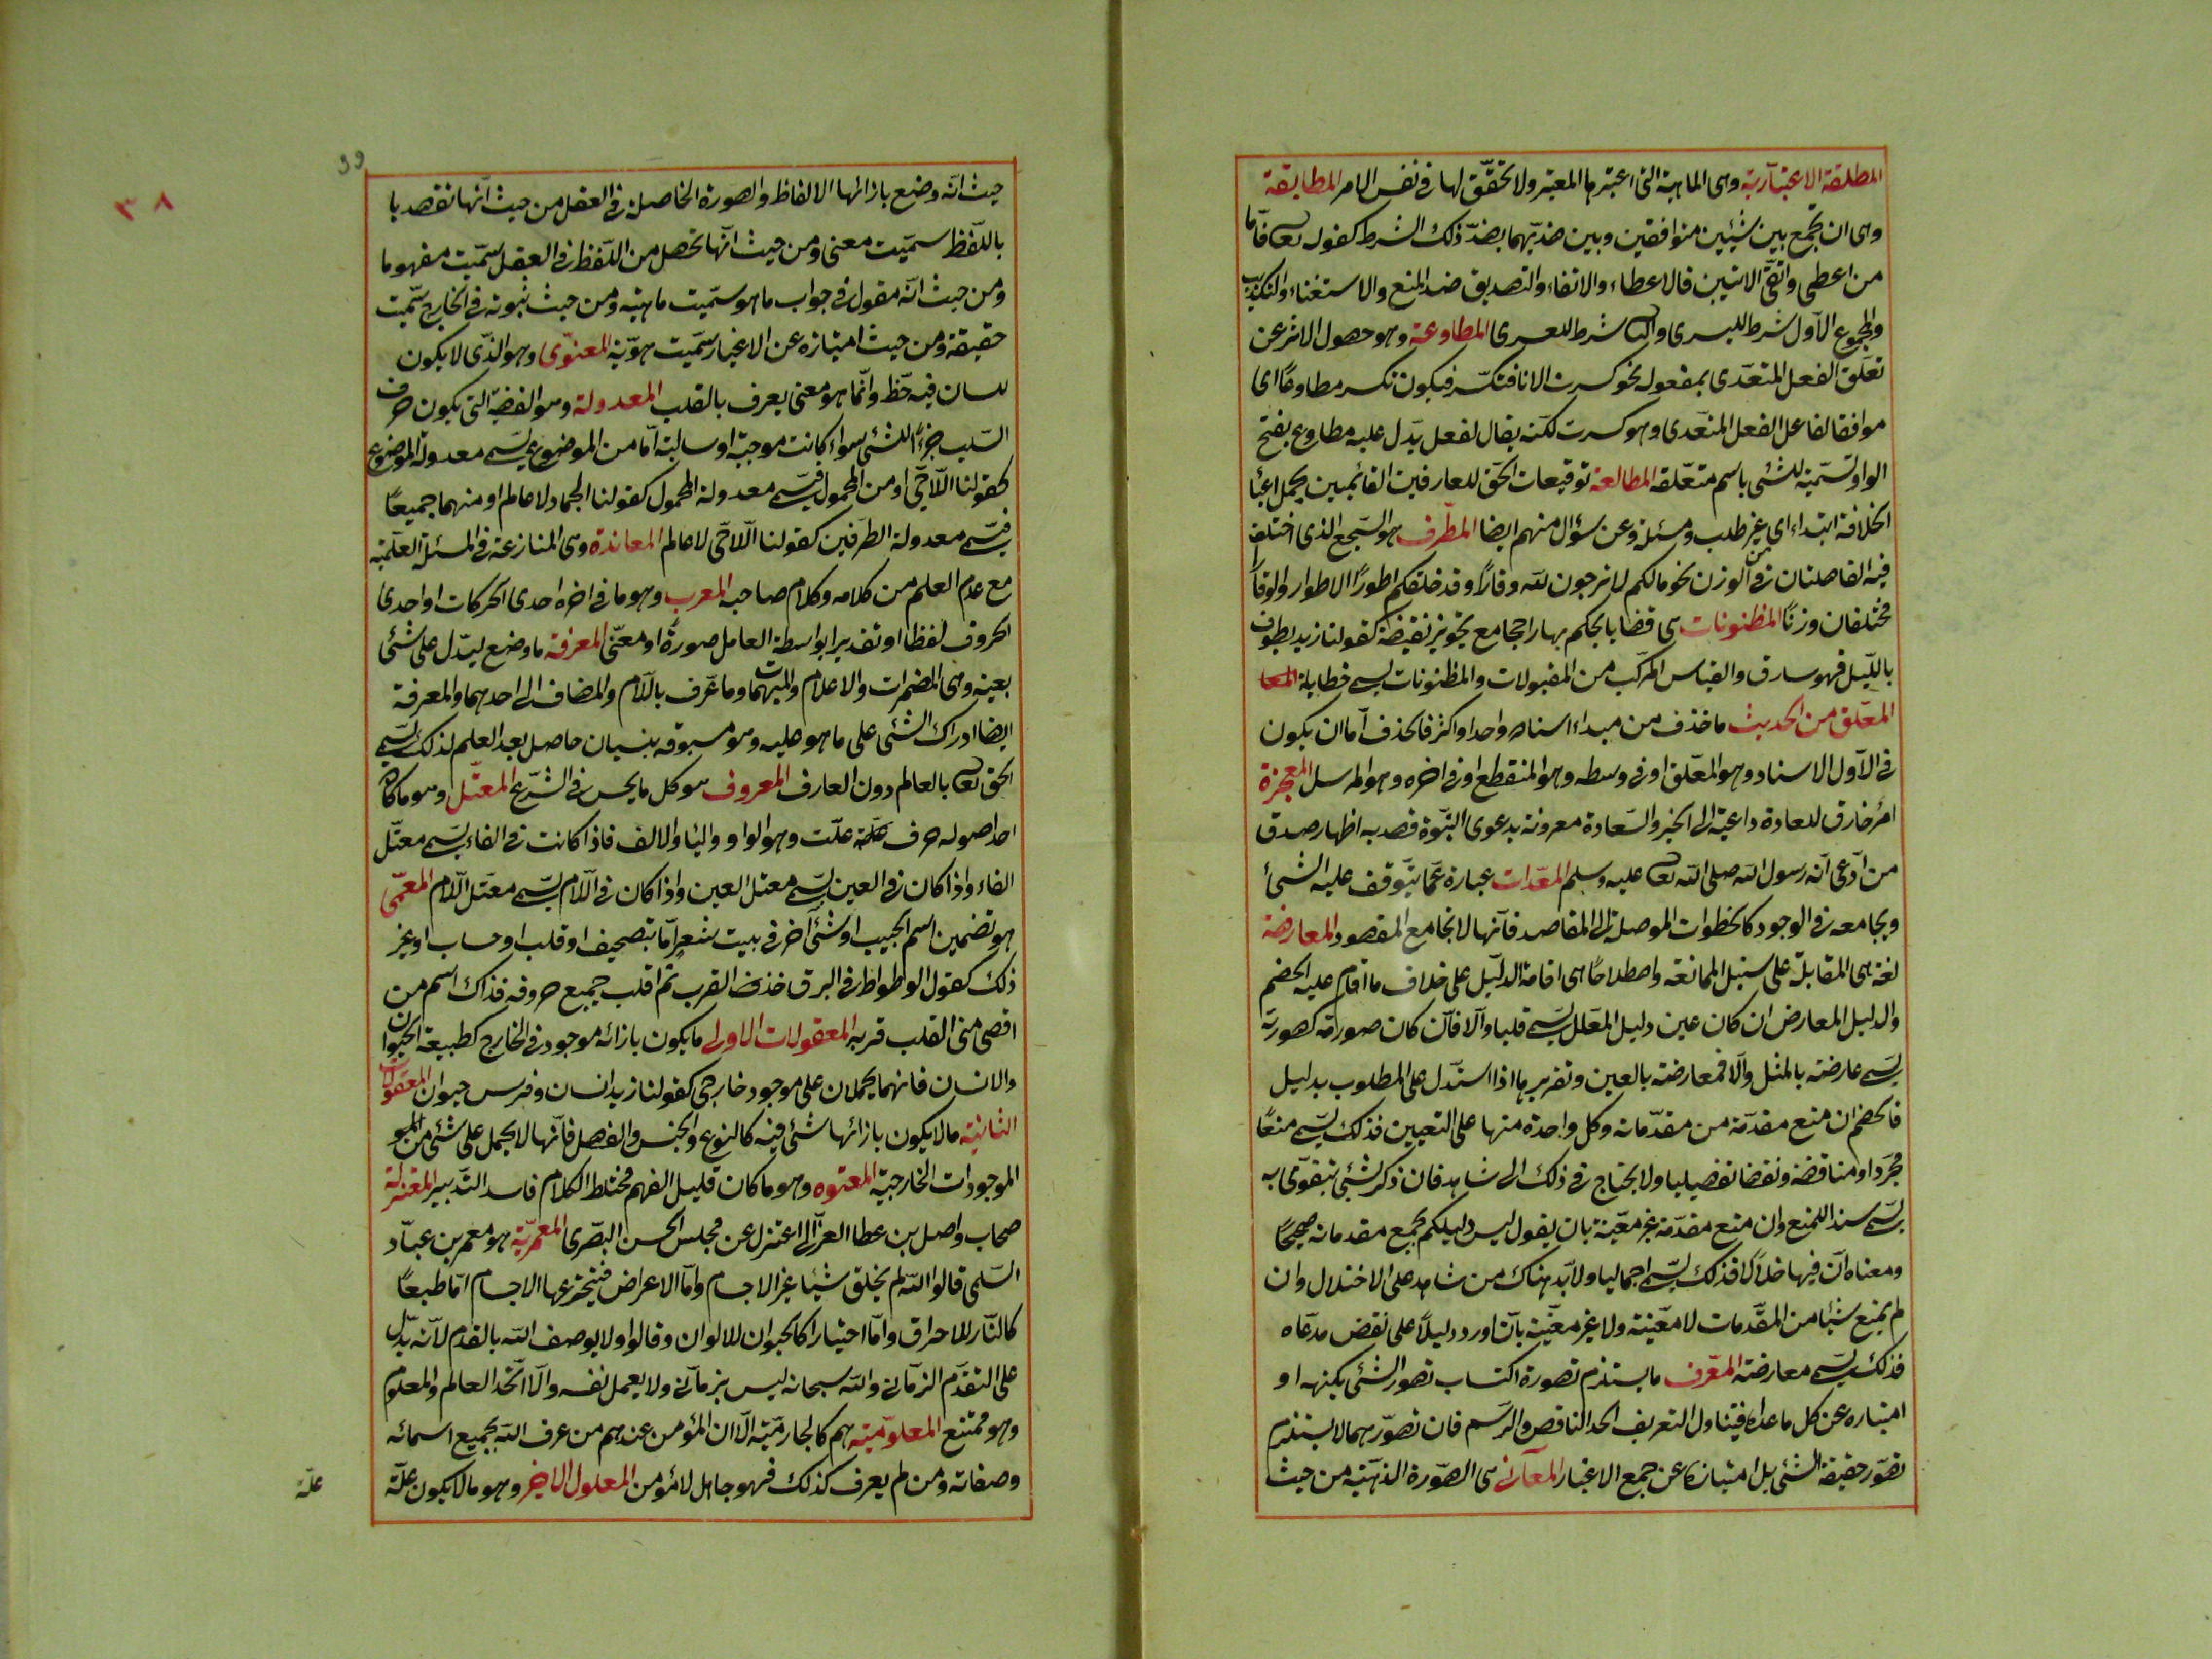 المطلقة الاعتبارية وهى الماهية التى اعتبرها المعتبر ولا تحقّق لها فى نفس الامر المطابقة
وهى ان تجمع بين شيئين متوافقين وبين ضدّيهما بضدّ ذلك الشرط كقوله تعا فامّا
من اعطى واتقى الاتيين فالاعطاء والاتقاء والتصديق ضد المنع والاستغناء والتكذيب
والمجموع الاول شرط لليسرى والثا شرط للعسرى المطاوعة وهو حصول الاثر عن
تعلّق الفعل المتعدى بمفعوله نحو كسرت الانا فتكسّر فيكون تكسر مطاوعًا اى
موافقا لفاعل الفعل المتعدى وهو كسرت لكنه يقال لفعل يدّل عليه مطاوع بفتح
الواو تسمّية للشئ باسم متعلّقه المطالعة توقيعات الحق للعارفين القائمين بحمل اعبا
الخلافة ابتداء اى من غير طلب ومسئلة وعن سؤال منهم ايضا المطرف هو السّجع الذى اختلف
فيه الفاصلتان فى الوزن نحو مالكم لا ترجون لله وقارًا وقد خلقكم اطورًا الاطوار والوقاً
مختلفان وزنًا المظنونات هى قضايا يحكم بها راجحا مع تجويز نقيضه كقولنا زيد يطوف
بالليل فهو سارق والقياس المركّب من المقبولات والمظنونات يسمى خطابة المعا
المعلّق من الحديث ما حذف من مبداء اسناده واحد او اكثر فالحذف اما ان يكون
فى الاول الاسناد وهو المعلّق او فى وسطه وهو المنقطع او فى اخره وهو المرسل المعجزة
امر خارق للعادة داعية الى الخير والسّعادة مقرونة بدعوى النبّوة قصد به اظهار صدق
من ادّعى انّه رسول الله صلى الله تعا عليه وسلم المعدّات عبارة عمّا يتوقف عليه الشئ
ويجامعه فى الوجود كالخطوات الموصلة الى المقاصد فانّها لا تجامع المقصود المعارضة
لغة هى المقابلة على سبيل الممانعة واصطلاحًا هى اقامة الدليل على خلاف ما اقام عليه الخصم
والدليل المعارض ان كان عين دليل المعلل يسمى قلبا والّا فان كان صورته كصورته
يسمى عارضته بالمثل والّا فمعارضته بالعين وتقريرها اذا استدّل على المطلوب بدليل
فالخصم ان منع مقدّمة من مقدّماته وكل واحدة منها على التعيين فذلك يسمى منعًا
مجرّدا ومناقضة ونقضا تفصيليا ولا يحتاج فى ذلك الى شاهد فان ذكر شئ يتقوّى به
يسمى سندا للمنع وان منع مقدّمة غير معيّنة بان يقول ليس دليلكم بجميع مقدماته صحيحًا
ومعناه ان فيها خللًا فذلك يسمى اجماليا ولابّد هناك من شاهد على الاختلال وان
لم يمنع شيئا من المقدّمات لا معيّنة ولا غير معيّنة بان اورد دليلًا على نقض مدّعاه
فذلك يسمى معارضة المعرّف ما يستلزم تصوره اكتساب تصور الشئ بكنهه او
امتيازه عن كل ما عداه فيتناول التعريف الحد الناقص والرسم فان تصوّرهما لا يستلزم
تصوّر حقيقة الشئ بل امتيازه عن جمع الاغيار المعانى هى الصّورة الذهنية من حيث
حيث انّه وضع بازائها الالفاظ والصورة الحاصلة فى العقل من حيث انّها تقصد با
باللفظ سمّيت معنى ومن حيث انّها تحصل من اللّفظ فى العقل سمّيت مفهوما
ومن حيث انّه مقول فى جواب ما هو سمّيت ماهيّة ومن حيث ثبوته فى الخارج سمّيت
حقيقة ومن حيث امتيازه عن الاغيار سمّيت هوّية المعنوّى وهو الذّى لا يكون
للسان فيه حظّ وانّما هو معنى يعرف بالقلب المعدولة وهو القضيّة التى يكون حرف
السّلب جزءًا للشئ سواء كانت موجبة او سالبة امّا من الموضوع يسمى معدولة الموضوع
كقولنا اللّاحّى او من المحمول فيسمى معدولة المحمول كقولنا الجماد لا عالم او منهما جميعًا
فيسّمى معدولة الطرّفين كقولنا اللّاحّى لا عالم المعاندة وهى المنازعة فى المسئلة العلميّة
مع عدم العلم من كلامه وكلام صاحبه المعرب وهو ما فى اخره احدى الحركات او احدى
الحروف لفظا او تقديرا بواسطة العامل صورةً او معنّى المعرفة ما وضع ليدّل على شئ
بعينه وهى المضمرات والاعلام والمبهمات وما عرّف باللّام والمضاف الى احدهما والمعرفة
ايضا ادراك الشئ على ما هو عليه وهو مسبوقة بنسيان حاصل بعد العلم لذلك يسمى
الحق تعا بالعالم دون العارف المعروف هو كل ما يحسن فى الشّرع المعتّل وهو ما كان
احد اصوله حرف علّة علّت وهو الواو واليا والالف فاذا كانت فى الفاء يسمى معتّل
الفاء واذا كان فى العين يسمى معتل العين واذا كان فى اللّام يسمى معتّل اللّام المعمّى
هو تضمين اسم الحبيب او شئ آخر فى بيت شعر امّا بتصحيف او قلب او حساب او غير
ذلك كقول الوطواط فى البرق خذ القرب ثم اقلب جميع حروفه فذاك اسم من
اقصى منى القلب قربه المعقولات الاولى ما يكون بازائه موجود فى الخارج كطبيعة الحيوان
والانسان فانهما يحملان على موجود خارجى كقولنا زيد انسان وفرس حيوان المعقولات
الثانية ما لا يكون بازائها شئ فيه كالنوع والجنس والفصل فانّها لا يحمل على شئ من المو
الموجودات الخارجية المعتوه وهو ما كان قليل الفهم مختلط الكلام فاسد التّدبير المعتزلة
صحاب واصل بن عطا العزّالى اعتزل عن مجلس الحسن البصّرى المعمّريّة هو معمر بن عبّاد
السّلمى قالوا الله لم يخلق شيئا غير الاجسام وامّا الاعراض فتخترعها الاجسام امّا طبعًا
كالنّار للاحراق وامّا اختيارا كالحيوان للالوان وقالوا ولا يوصف الله بالقدم لانّه يدّل
على التقدّم الزمانى والله سبحانه ليس بزمانى ولا يعمل نفسه والّا اتّحد العالم والمعلوم
وهو ممتنع المعلوميّة هم كالجازميّة الّا ان المؤمن عندهم من عرف الله بجميع اسمائه
وصفاته ومن لم يعرف كذلك فهو جاهل لا مؤمن المعلول الاخير وهو ما لا يكون علّة
علّة
٣٨
39